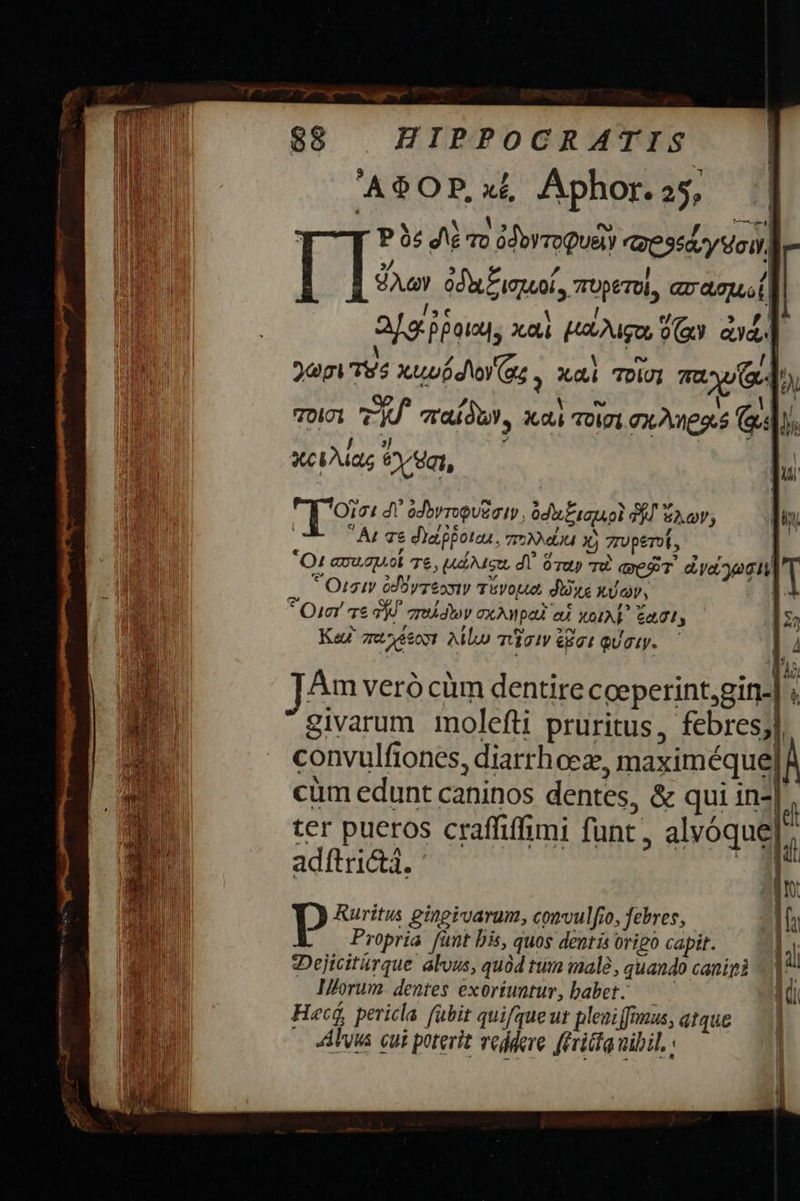 88 HIPPOCRATIS
ἈΦΟΡ. κέ. Aphor. 25,
ΠΡὸς δὲ τὸ ὀδοντοφυεῖν προσάγουσιν,
οὔλων ὀδαξισμοί, πυρετοὶ, σπασμοὶ
διάῤῥοιαι, καὶ μάλιστα ὅταν ἀνά-
γωσι τοὺς κυνόδοντας, καὶ τοῖσι παχυτά-
τοισι τῶν παίδων, καὶ τοῖσι σκληρὰς τὰς
κοιλίας ἔχουσι,
ΤΟῖσι δ' ὀδοντοφυοῦσιν, ὀδαξισμοὶ τῶν οὔλων,
Αἵ τε διάῤῥοιαι, πολλάκι καὶ πυρετοί,
Οἱ σπασμοί τε, μάλιστα δ' ὅταν τὰ
Οἷσιν κύων,
Οἷσί τε τῶν παίδων σκληραὶ αἱ κοιλί' ἔασι,
Καὶ λίην τοῖσιν φύσιν.
JAm verò cùm dentire cœperint, gin-
givarum molesti pruritus, febres,
convulsiones, diarrhœæ, maximéque
cùm edunt caninos dentes, & qui in-
ter pueros crassissimi sunt, alvóque
adstrictâ.
PRuritus gingivarum, convulsio, febres,
Propria sunt his, quos dentis origo capit.
Dejicitúrque alvus, quòd tum malè, quando canini
Illorum dentes exoriuntur, habet.
Hæcq́; pericla subit quisque ut plenissimus, atque
Alvus cui poterit reddere stricta nihil.